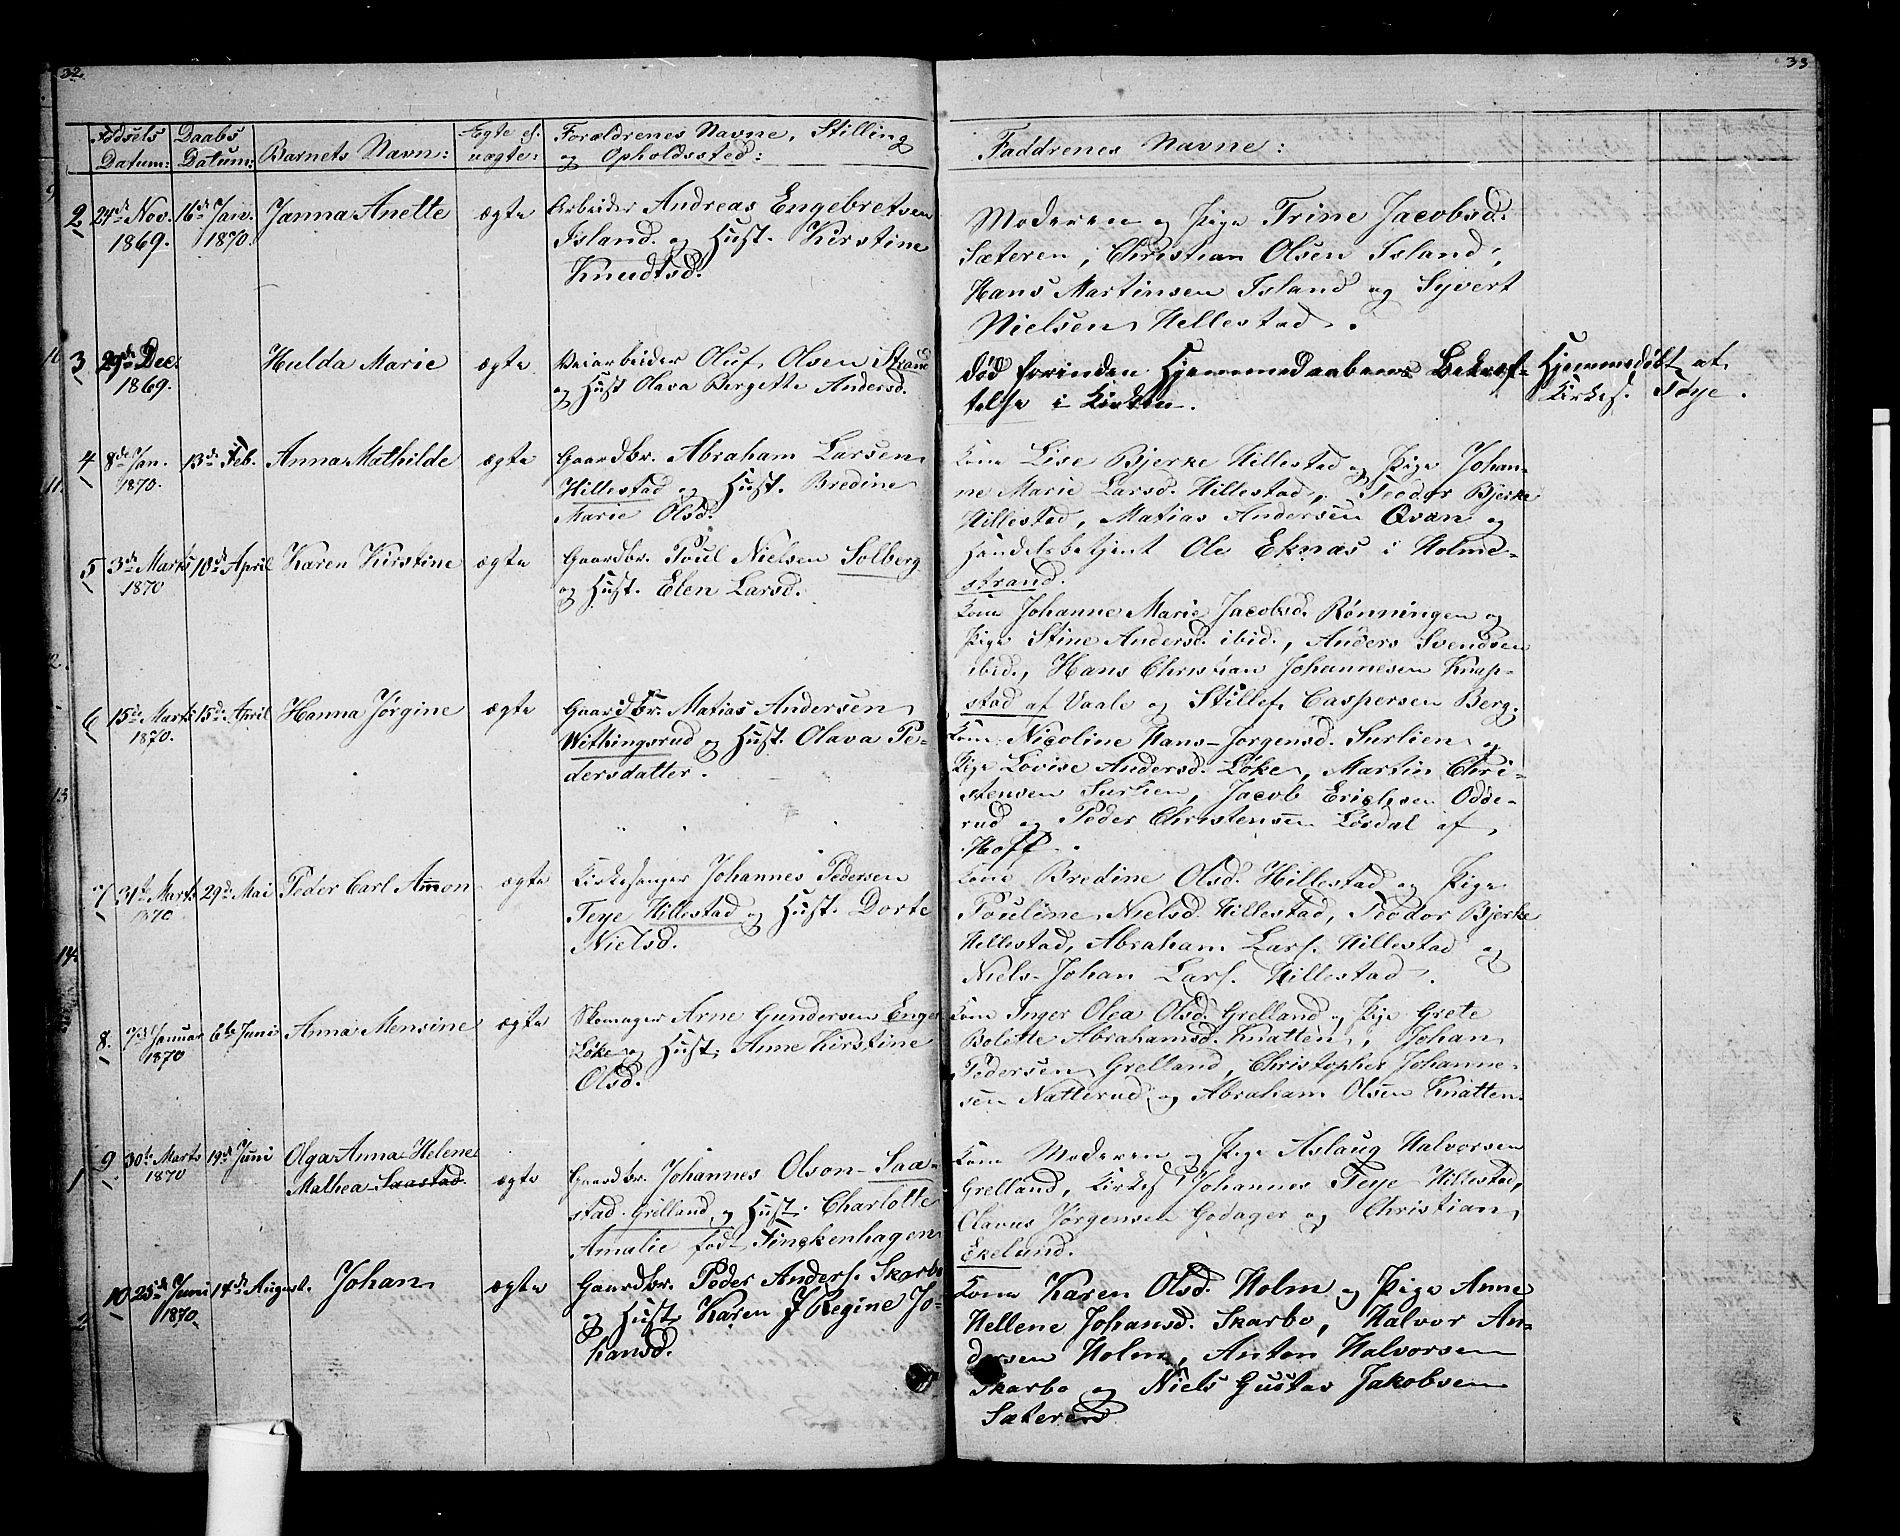 32.
33
Fødsels Datum:
Daabs Datum:
Barnets Navn:
Ægte el. uægte:
Forældrenes Navne, Stilling
og Opholdssted:
Faddrenes Navne:
2 24de Nov. 16de Jan. Janna Anette ægte Arbeider Andreas Engebretsen
1869. 1870. Island og Hust. Kirstine
Knudtsd.
Moderen og Pige Trine Jacobsd.
Sæteren, Christian Olsen Island,
Hans Martinsen Island og Syvert
Nielsen Hillestad.
3 29de Dec. Hulda Marie ægte Veiarbeider Oluf Olsen Strand
1869. og Hust Olava Bergette Andersd.
død forinden Hjemmedaabens Bekræf- Hjemmedøbt af
telse i Kirken. Kirkes. Teye.
4 8de Jan. 13de Feb. Anna Mathilde ægte Gaardbr. Abraham Larsen
1870. Hillestad og Hust. Bredine
Marie Olsd.
Kone Lise Bjerke Hillestad og Pige Johan-
ne Marie Larsd. Hillestad, Teodor Bjerke
Hillestad, Matias Andersen Qvan og
Handelsbetjent Ole Eknæs i Holme-
strand.
5 3de Marts 10de April Karen Kirstine ægte Gaardbr. Poul Nielsen Solberg
1870 og Hust. Elen Larsd.
Kone Johanne Marie Jacobsd. Rønningen og
Pige Stine Andersd. ibid., Anders Svendsen
ibid., Hans Christian Johannesen Knap-
stad af Vaale og Stillef Caspersen Berg.
6 15de Marts 15de April Hanna Jørgine ægte Gaardbr. Matias Andersen
1870. Wittingsrud og Hust. Olava Pe-
dersdatter.
Kone Nicoline Hans-Jorgensd. Surlien og
Pige Lovise Andersd. Løke, Martin Chri-
stensen Surlien, Jacob Ericksen Odde-
rud og Peder Christensen Lørdal af
Hoff.
7 31te Marts 29de Mai Peder Carl Ammon ægte Kirkesanger Johannes Pedersen
1870 Teye Hillestad og Hust. Dorte
Nielsd.
Kone Bredine Olsd. Hillestad og Pige
Pauline Nielsd. Hillestad, Teodor Bjerke
Hillestad, Abraham Lars. Hillestad og
Niels-Johan Lars. Hillestad.
8. Januar 6te Juni Anna Mensine ægte Skomager Arne Gundersen Enger
1870 Løke og Hust. Anne Kirstine
Olsd.
Kone Inger Olea Olsd. Grelland, Pige Grete
Bolette Abrahamsd. Knatten, Johan
Pedersen Grelland, Christopher Johanne-
sen Natterud og Abraham Olsen Knatten.
9. 30te Marts 19de Juni Olga Anna Helene
1870 Mathea Saastad ægte Gaardbr. Johannes Olson Saa-
stad Grelland og Hust. Charlotte
Amalie fød Finckenhagen
Kone Moderen og Pige Aslaug Halvorsen
Grelland, Kirkes Johannes Teye Hillestad,
Olavus Jørgensen Godager og Christian
Ekelund.
10. 25de Juni 14de August. Johan ægte Gaardbr. Peder Anders. Skarbo
1870. og Hust. Karen J Regine Jo-
hansd.
Kone Karen Olsd. Holm og Pige Anne
Hellene Johansd. Skarbo, Halvor An-
dersen Holm, Anton Halvorsen
Skarbo og Niels Gustav Jakobsen
Sæteren